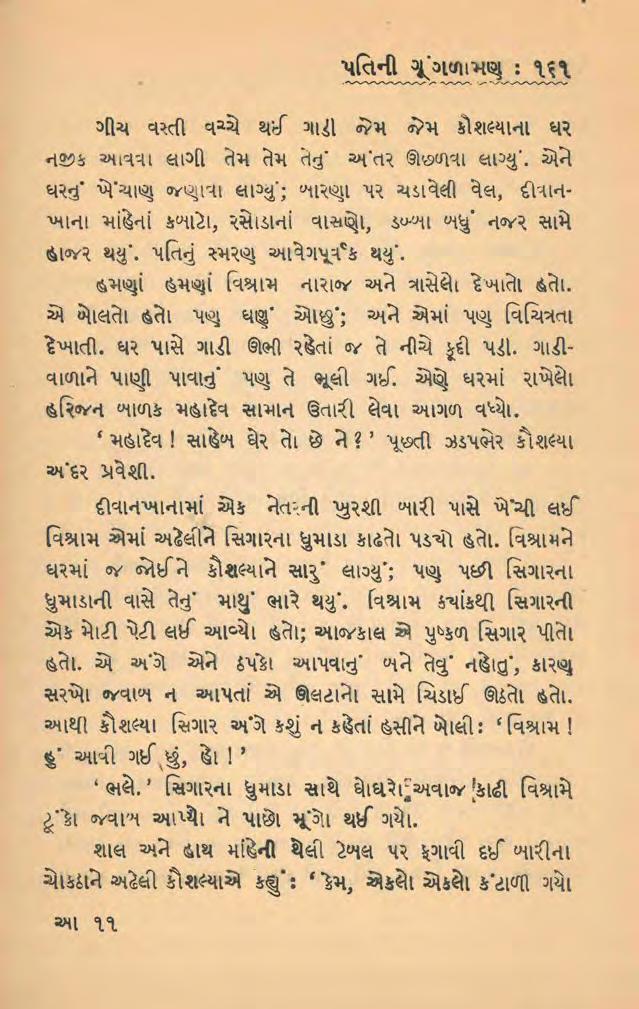 પતિની ગૂંગળામણ : ૧૬૧
ગીચ વસ્તી વચ્ચે થઈ ગાડી જેમ જેમ કૌશલ્યાના ઘર
નજીક આવવા લાગી તેમ તેમ તેનું અંતર ઊછળવા લાગ્યું. એને
ઘરનું ખેંચાણ જણાવા લાગ્યું; બારણા પર ચડાવેલી વેલ, દીવાન-
ખાના માંહેનાં કબાટો, રસોડાનાં વાસણો, ડબ્બા બધું નજર સામે
હાજર થયું. પતિનું સ્મરણ આવેગપૂર્વક થયું.
હમણાં હમણાં વિશ્રામ નારાજ અને ત્રાસેલો દેખાતો હતો.
એ બોલતો હતો પણ ઘણું ઓછું; અને એમાં પણ વિચિત્રતા
દેખાતી. ઘર પાસે ગાડી ઊભી રહેતાં જ તે નીચે કૂદી પડી. ગાડી-
વાળાને પાણી પાવાનું પણ તે ભૂલી ગઈ. એણે ઘરમાં રાખેલો
હરિજન બાળક મહાદેવ સામાન ઉતારી લેવા આગળ વધ્યો.
‘મહાદેવ ! સાહેબ ઘેર તો છે ને ?’ પૂછતી ઝડપભેર કૌશલ્યા
અંદર પ્રવેશી.
દીવાનખાનામાં એક નેતરની ખુરશી બારી પાસે ખેંચી લઈ
વિશ્રામ એમાં અઢેલીને સિગારના ધુમાડા કાઢતો પડ્યો હતો. વિશ્રામને
ઘરમાં જ જોઈને કૌશલ્યાને સારું લાગ્યું; પણ પછી સિગારના
ધુમાડાની વાસે તેનું માથું ભારે થયું. વિશ્રામ ક્યાંકથી સિગારની
એક મોટી પેટી લઈ આવ્યો હતો; આજકાલ એ પુષ્કળ સિગાર પીતો
હતો. એ અંગે એને ઠપકો આપવાનું બને તેવું નહોતું, કારણ
સરખો જવાબ ન આપતાં એ ઊલટાનો સામે ચિડાઈ ઊઠતો હતો.
આથી કૌશલ્યા સિગાર અંગે કશું ન કહેતાં હસીને બોલી : ‘વિશ્રામ !
હું આવી ગઈ છું, હો !’
‘ભલે.’ સિગારના ધુમાડા સાથે ઘોઘરો અવાજ કાઢી વિશ્રામે
ટૂંકો જવાબ આપ્યો ને પાછો મૂંગો થઈ ગયો.
શાલ અને હાથ માંહેની થેલી ટેબલ પર ફગાવી દઈ બારીના
ચોકઠાને અઢેલી કૌશલ્યાએ કહ્યું : ‘કેમ, એકલો એકલો કંટાળી ગયો
આ ૧૧